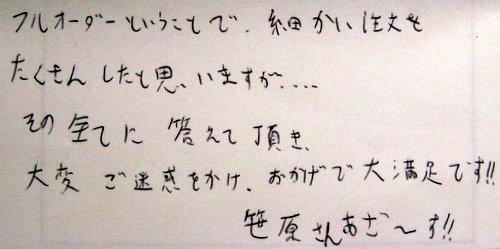 フルオーダーということで、細かい注文を
たくさんしたと思いますが、...
その全てに答えて頂き、
大変ご迷惑をかけ、おかげで大満足です!!
笹原さんあざ〜す!!